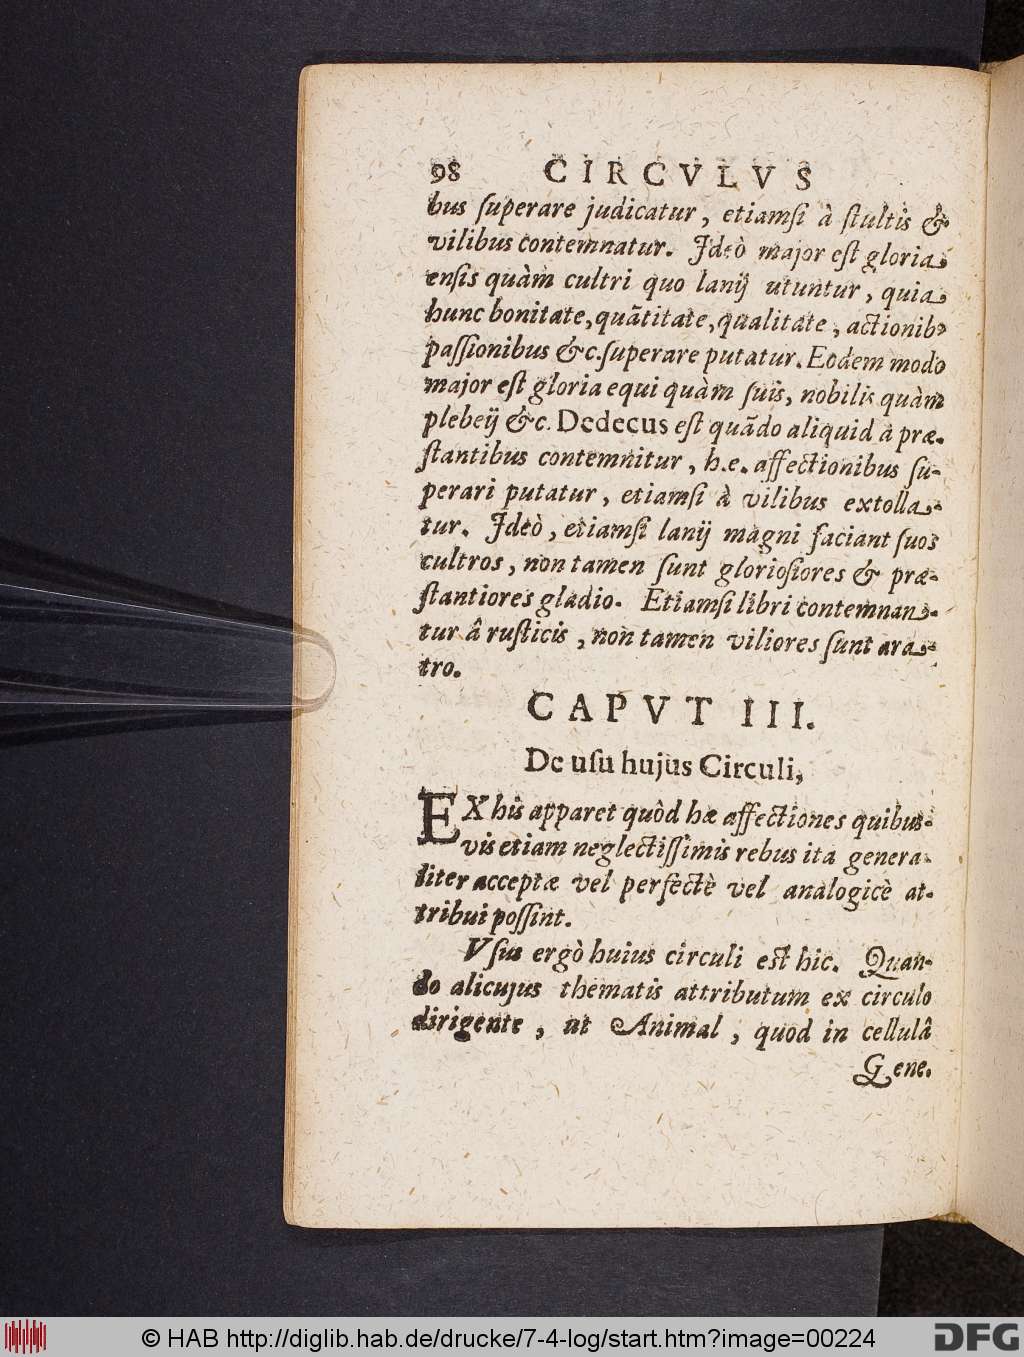 98 CIRCVLVS
bus ſuperare judicatur, etiamſi à ſtultis &
vilibus contemnatur. Ideò major eſt gloria
enſis quàm cultri quo lanij utuntur, quia
hunc bonitate, quãtitate, qualitate, actionib9
paſſionibus &c. ſuperare putatur. Eodem modo
major eſt gloria equi quàm ſuis, nobilis quàm
plebeij &c. Dedecus eſt quãdo aliquid à præ-
ſtantibus contemnitur, h.e. affectionibus ſu-
perari putatur, etiamſi à vilibus extolla-
tur. Ideò, etiamſi lanij magni faciant ſuos
cultros, non tamen ſunt glorioſiores & præ-
ſtantiores gladio. Etiamſi libri contemnan-
tur â ruſticis, non tamen viliores ſunt ara-
tro.
CAPVT III.
De uſu hujus Circuli,
EX his apparet quòd hæ affectiones quibus-
vis etiam neglectiſſimis rebus ita genera-
liter acceptæ vel perfectè vel analogicè at-
tribui poſſint.
Vſus ergò huius circuli eſt hic. Quan-
do alicujus thematis attributum ex circulo
dirigente, ut Animal, quod in cellulâ
Gene-
© HAB http://diglib.hab.de/drucke/7-4-log/start.htm?image=00224
DFG